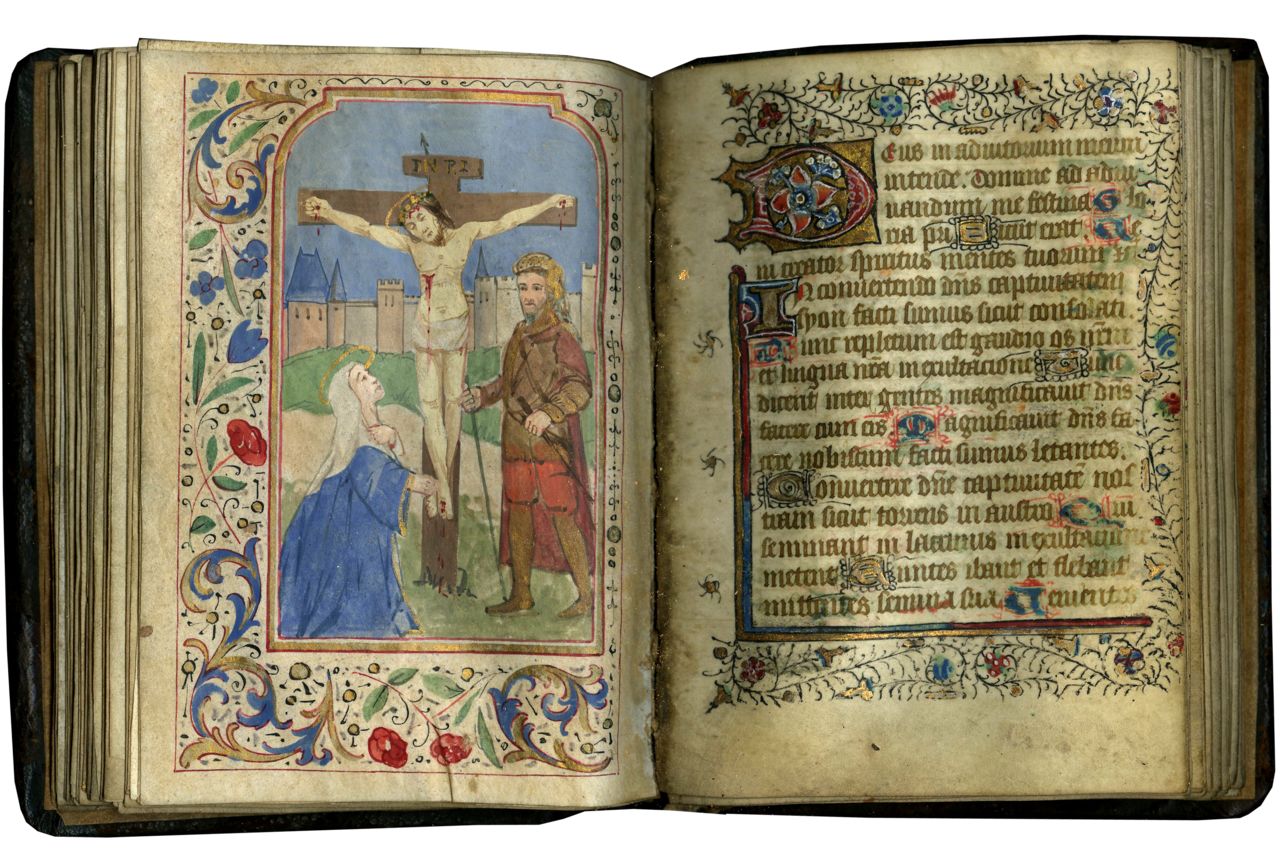 INRI
Deus in adiutorium meum
intende. Domine ad adiu
uandum me festina Glo
ria pri Sicut erat. Ve
ni creator spiritus mentes tuorum v
In conuertendo dñs captiuitatem
syon facti sumus sicut consolati.
Tunc repletum est gaudio os nrm
et lingua nra in exultacione Tunc
dicent inter gentes magnificauit dñs
facere cum eis Magnificauit dñs fa
cere nobiscum facti sumus letantes.
Conuertere dñe captiuitatē nos
tram sicut torrens in austro Qui
seminant in lacrimis in exultacione
metent Euntes ibant et flebant
mittentes semina sua Venientes